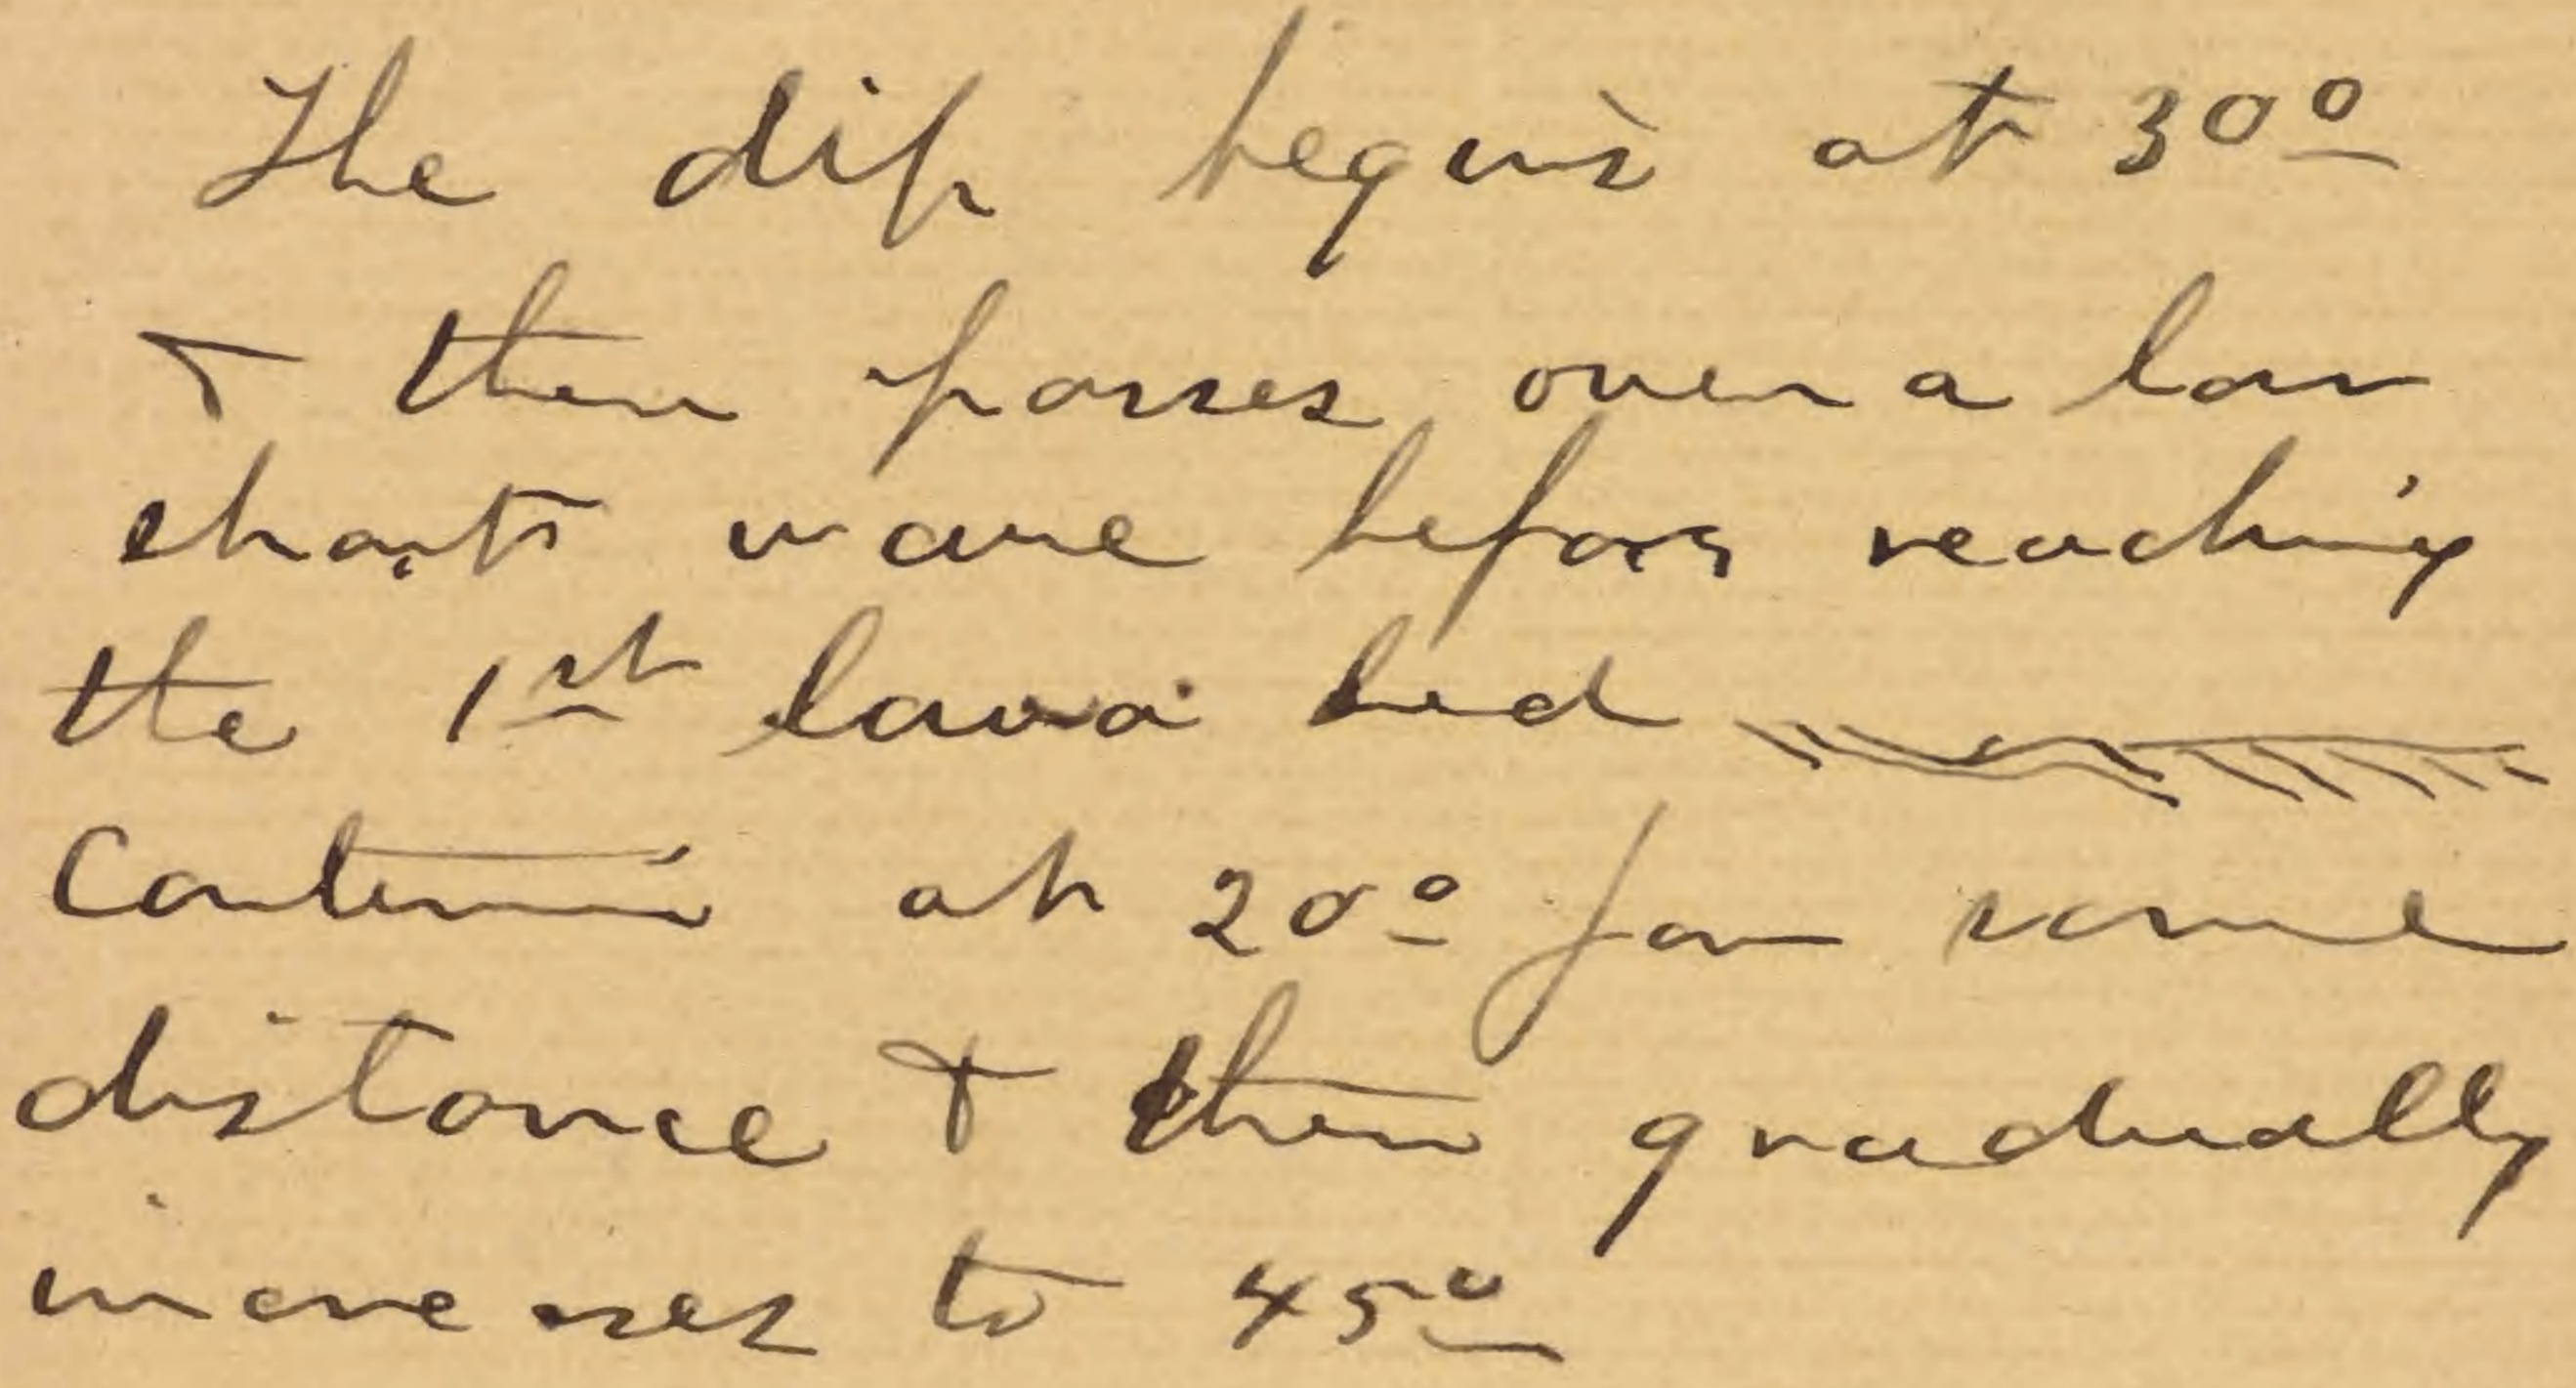 The dip begins at 30°
& then passes over a low
short wave before reaching
the 1st lava bed
Continues at 20° for some
distance & then gradually
increases to 45°